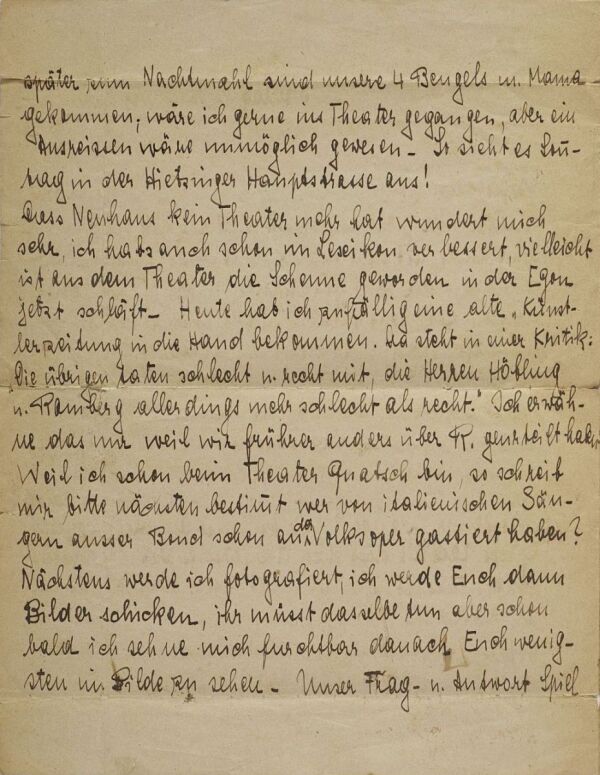 später zum Nachtmahl sind unsere 4 Bengels u. Mama
gekommen; wäre ich gerne ins Theater gegangen, aber ein
Ausreissen wäre unmöglich gewesen – So sieht es Sonn-
tag in der Hietzinger Hauptstrasse aus!
Dass Neuhaus kein Theater mehr hat wundert mich
sehr, ich habs auch schon im Lexikon verbessert, vielleicht
ist aus dem Theater die Scheune geworden in der Egon
jetzt schläft – Heute hab ich zufällig eine alte „Künst-
lerzeitung in die Hand bekommen. Da steht in einer Kritik:
„Die übrigen taten schlecht u. recht mit, die Herren Höbling
u. Ramberg allerdings mehr schlecht als recht." Ich erwäh-
ne das nur weil wir frührer anders über R. geurteilt haben.
Weil ich schon beim Theater Quatsch bin, so schreib
mir bitte nächsten bestimt wer von italienischen Sän-
gern ausser Bond schon an der Volksoper gastiert haben?
Nächstens werde ich fotografiert, ich werde Euch dann
Bilder schicken, ihr müsst dasselbe tun aber schon
bald ich sehne mich furchtbar danach Euch wenig-
sten im Bilde zu sehen – Unser Frag- u. Antwort Spiel